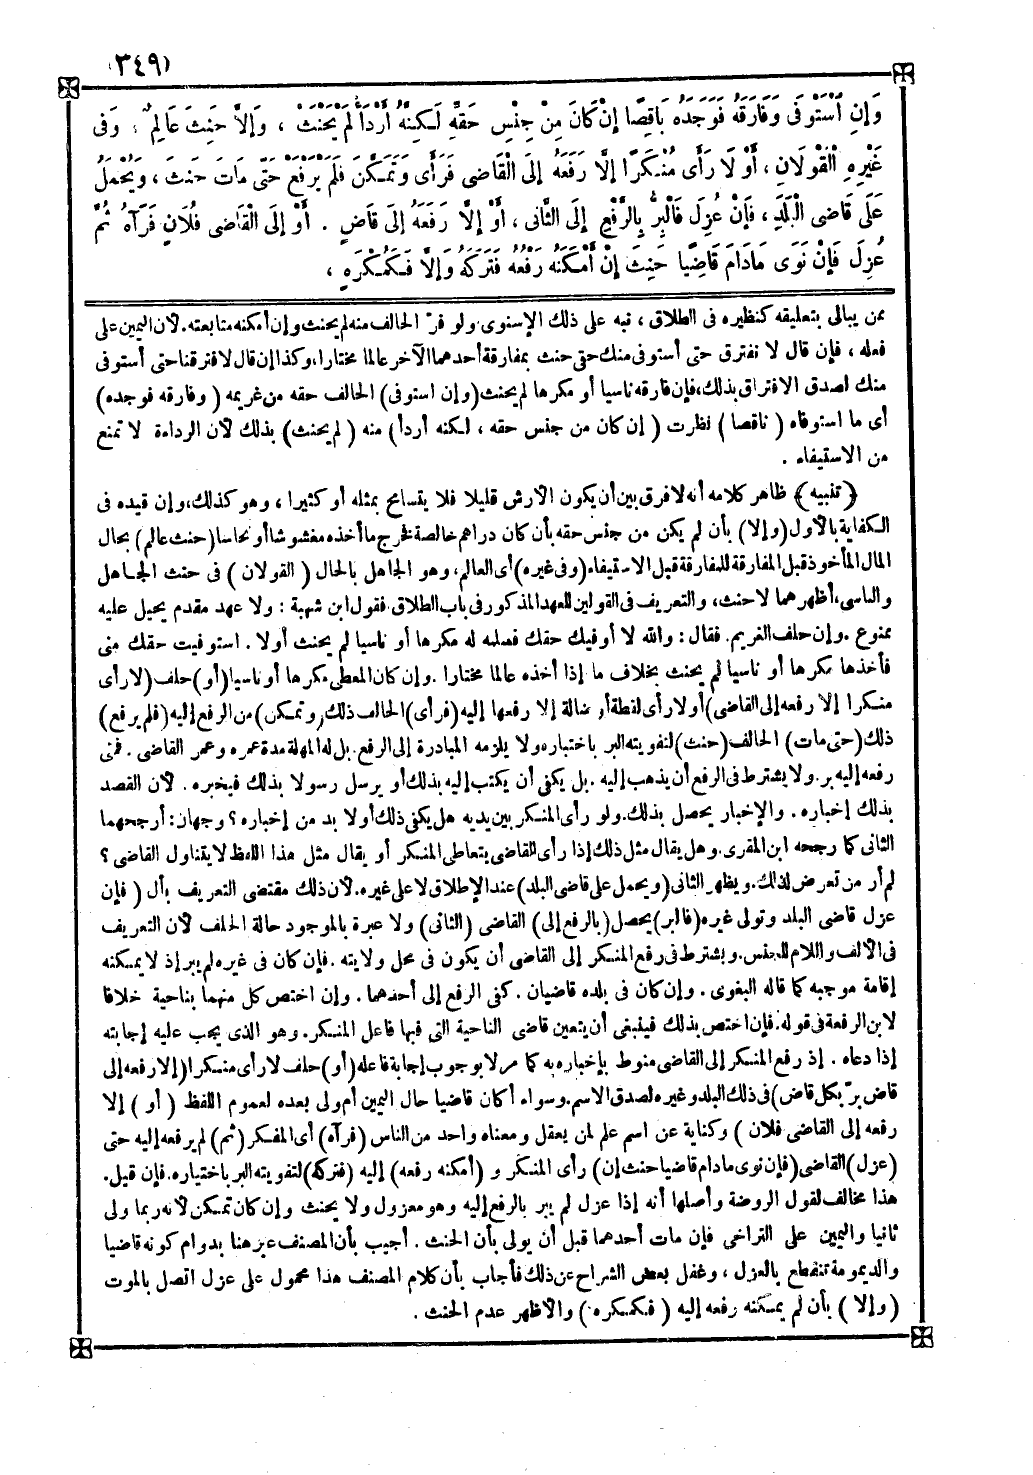 (٣٤٩)
وَإِنِ اسْتَوْفَى وَفَارَقَهُ فَوَجَدَهُ نَاقِصًا إِنْ كَانَ مِنْ جِنْسِ حَقِّهِ لَكِنَّهُ أَرْدَأُ لَمْ يَحْنَثْ ، وَإِلَّا حَنِثَ عَالِمٌ ، وَفِى
غَيْرِهِ الْقَوْلَانِ ، أَوْ لَا رَأَى مُنْكَرًا إِلَّا رَفَعَهُ إِلَى الْقَاضِى فَرَأَى وَتَمَكَّنَ فَلَمْ يَرْفَعْ حَتَّى مَاتَ حَنِثَ ، وَيُحْمَلُ
عَلَى قَاضِى الْبَلَدِ ، فَإِنْ عُزِلَ فَالْبِرُّ بِالرَّفْعِ إِلَى الثَّانِى ، أَوْ إِلَّا رَفَعَهُ إِلَى قَاضٍ . أَوْ إِلَى الْقَاضِى فُلَانٍ فَرَآهُ ثُمَّ
عُزِلَ فَإِنْ نَوَى مَادَامَ قَاضِيًا حَنِثَ إِنْ أَمْكَنَهُ رَفْعُهُ فَتَرَكَهُ وَإِلَّا فَكَمُكْرَهٍ ،
ممن يبالى بتعليقه كنظيره فى الطلاق ، نبه على ذلك الإسنوى ولو فر الحالف منه لم يحنث وإن أمكنه متابعته.لأن اليمين على
فعله ، فإن قال لا نفترق حتى أستوفى منك حقى حنث بمفارقة أحدهما الآخر عالما مختارا،وكذا إن قال لافترقنا حتى أستوفى
منك لصدق الافتراق بذلك،فإن فارقه ناسيا أو مكرها لم يحنث (وإن استوفى) الحالف حقه من غريمه ( وفارقه فوجده)
أى ما استوفاه ( ناقصا ) نظرت ( إن كان من جنس حقه ، لكنه أردأ ) منه ( لم يحنث) بذلك لأن الرداءة لا تمنع
من الاستيفاء .
﴿تنبيه﴾ ظاهر كلامه أنه لا فرق بين أن يكون الأرش قليلا فلا يتسامح بمثله أو كثيرا ، وهو كذلك،وإن قيده فى
الكفاية بالأول (وإلا) بأن لم يكن من جنس حقه بأن كان دراهم خالصة فخرج ما أخذه مغشوشا أو نحاسا (حنث عالم) بحال
المال المأخوذ قبل المفارقة للمفارقة قبل الاستيفاء (وفى غيره) أى العالم،وهو الجاهل بالحال ( القولان ) فى حنث الجاهل
والناسى،أظهرهما لا حنث، والتعريف فى القولين للعهد المذكور فى باب الطلاق فقول ابن شهبة : ولا عهد مقدم يحيل عليه
ممنوع .وإن حلف الغريم. فقال : والله لا أوفيك حقك فسلمه له مكرها أو ناسيا لم يحنث أولا . استوفيت حقك منى
فأخذها مكرها أو ناسيا لم يحنث بخلاف ما إذا أخذه عالما مختارا .وإن كان المعطى مكرها أو ناسيا (أو) حلف (لا رأى
منكرا إلا رفعه إلى القاضى) أو لا رأى لقطة أو ضالة إلا رفعها إليه (فرأى) الحالف ذلك (وتمكن) من الرفع إليه (فلم يرفع)
ذلك (حتى مات) الحالف (حنث) لتفويته البر باختياره ولا يلزمه المبادرة إلى الرفع. بل له المهلة مدة عمره وعمر القاضى . فمتى
رفعه إليه بر.ولا يشترط فى الرفع أن يذهب إليه .بل يكفى أن يكتب إليه بذلك أو يرسل رسولا بذلك فيخبره . لأن القصد
بذلك إخباره . والإخبار يحصل بذلك.ولو رأى المنكر بين يديه هل يكفى ذلك أو لا بد من إخباره ؟ وجهان : أرجحهما
الثانى كما رجحه ابن المقرى.وهل يقال مثل ذلك إذا رأى القاضى يتعاطى المنكر أو يقال مثل هذا اللفظ لا يتناول القاضى ؟
لم أر من تعرض لذلك.ويظهر الثانى (ويحمل على قاضى البلد) عند الإطلاق لا على غيره.لأن ذلك مقتضى التعريف بأل ( فإن
عزل قاضى البلد وتولى غيره (فالبر) يحصل (بالرفع إلى) القاضى (الثانى) ولا عبرة بالموجود حالة الحلف لأن التعريف
فى الألف واللام للجنس.ويشترط فى رفع المنكر إلى القاضى أن يكون فى محل ولايته .فإن كان فى غيره لم يبر إذ لا يمكنه
إقامة موجبه كما قاله البغوى . وإن كان فى بلده قاضيان .كفى الرفع إلى أحدهما . وإن اختص كل منهما بناحية خلافا
لابن الرفعة فى قوله.فإن اختص بذلك فينبغى أن يتعين قاضى الناحية التى فيها فاعل المنكر. وهو الذى يجب عليه إجابته
إذا دعاه . إذ رفع المنكر إلى القاضى منوط بإخباره به كما مر لا بوجوب إجابة فاعله (أو) حلف لا رأى منكرا (إلا رفعه إلى
قاض برّ بكل قاض) فى ذلك البلد وغيره لصدق الاسم.وسواء أكان قاضيا حال اليمين أم ولى بعده لعموم اللفظ ( أو ) إلا
رفعه إلى القاضى فلان ) وكناية عن اسم علم لمن يعقل ومعناه واحد من الناس (فرآه) أى المنكر (ثم) لم يرفعه إليه حتى
(عزل) القاضى (فإن نوى مادام قاضيا حنث إن) رأى المنكر و (أمكنه رفعه) إليه (فتركه) لتفويته البر باختياره.فإن قيل.
هذا مخالف لقول الروضة وأصلها أنه إذا عزل لم يبر بالرفع إليه وهو معزول ولا يحنث وإن كان تمكن لأنه ربما ولى
ثانيا واليمين على التراخى فإن مات أحدهما قبل أن يولى بأن الحنث . أجيب بأن المصنف عبر هنا بدوام كونه قاضيا
والديمومة تنقطع بالعزل ، وغفل بعض الشراح عن ذلك فأجاب بأن كلام المصنف هذا محمول على عزل اتصل بالموت
(وإلا ) بأن لم يمكنه رفعه إليه ( فكمكره ) والأظهر عدم الحنث .